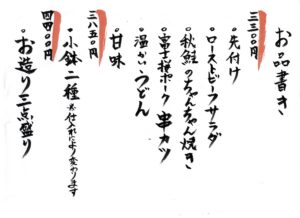 お品書き
三三〇〇円
・先付け
・ローストビーフサラダ
・秋鮭のちゃんちゃん焼き
・富士桜ポーク 串カツ
・温かいうどん
・甘味
三八五〇円
・小鉢二種 ※仕入れにより変わります
四四〇〇円
・お造り三点盛り